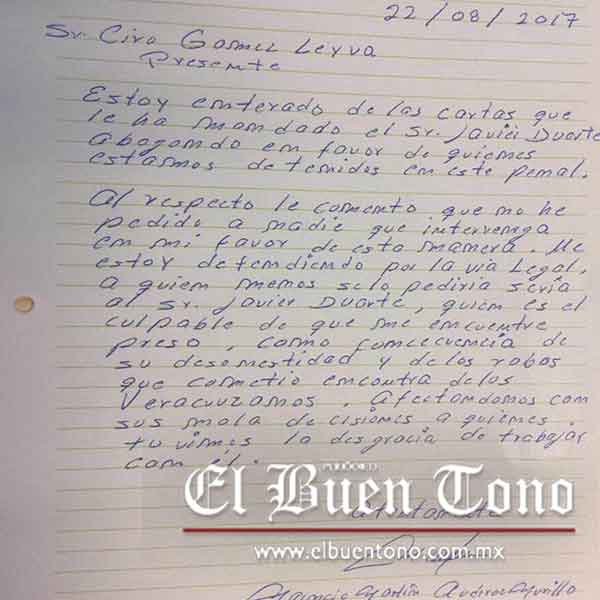 22/08/2017
Sr. Ciro Gomez Leyva
Presente
Estoy enterado de las cartas que
le ha mandado el Sr. Javier Duarte
abogando en favor de quienes
estamos detenidos en este penal.
Al respecto le comento que no he
pedido a nadie que intervenga
en mi favor de esta manera. Me
estoy defendiendo por la via Legal,
a quien menos se lo pediria seria
al Sr. Javier Duarte, quien es el
culpable de que me encuentre
preso, como concecuencia de
su desonestidad y de los robos
que cometio encontra delos
Veracruzanos. Afectandonos con
sus mala decisiones a quienes
tuvimos la desgracia de trabajar
con él.
PERIÓDICO
El Buen Tono
Atentamente
www.elbuentono.com.mx